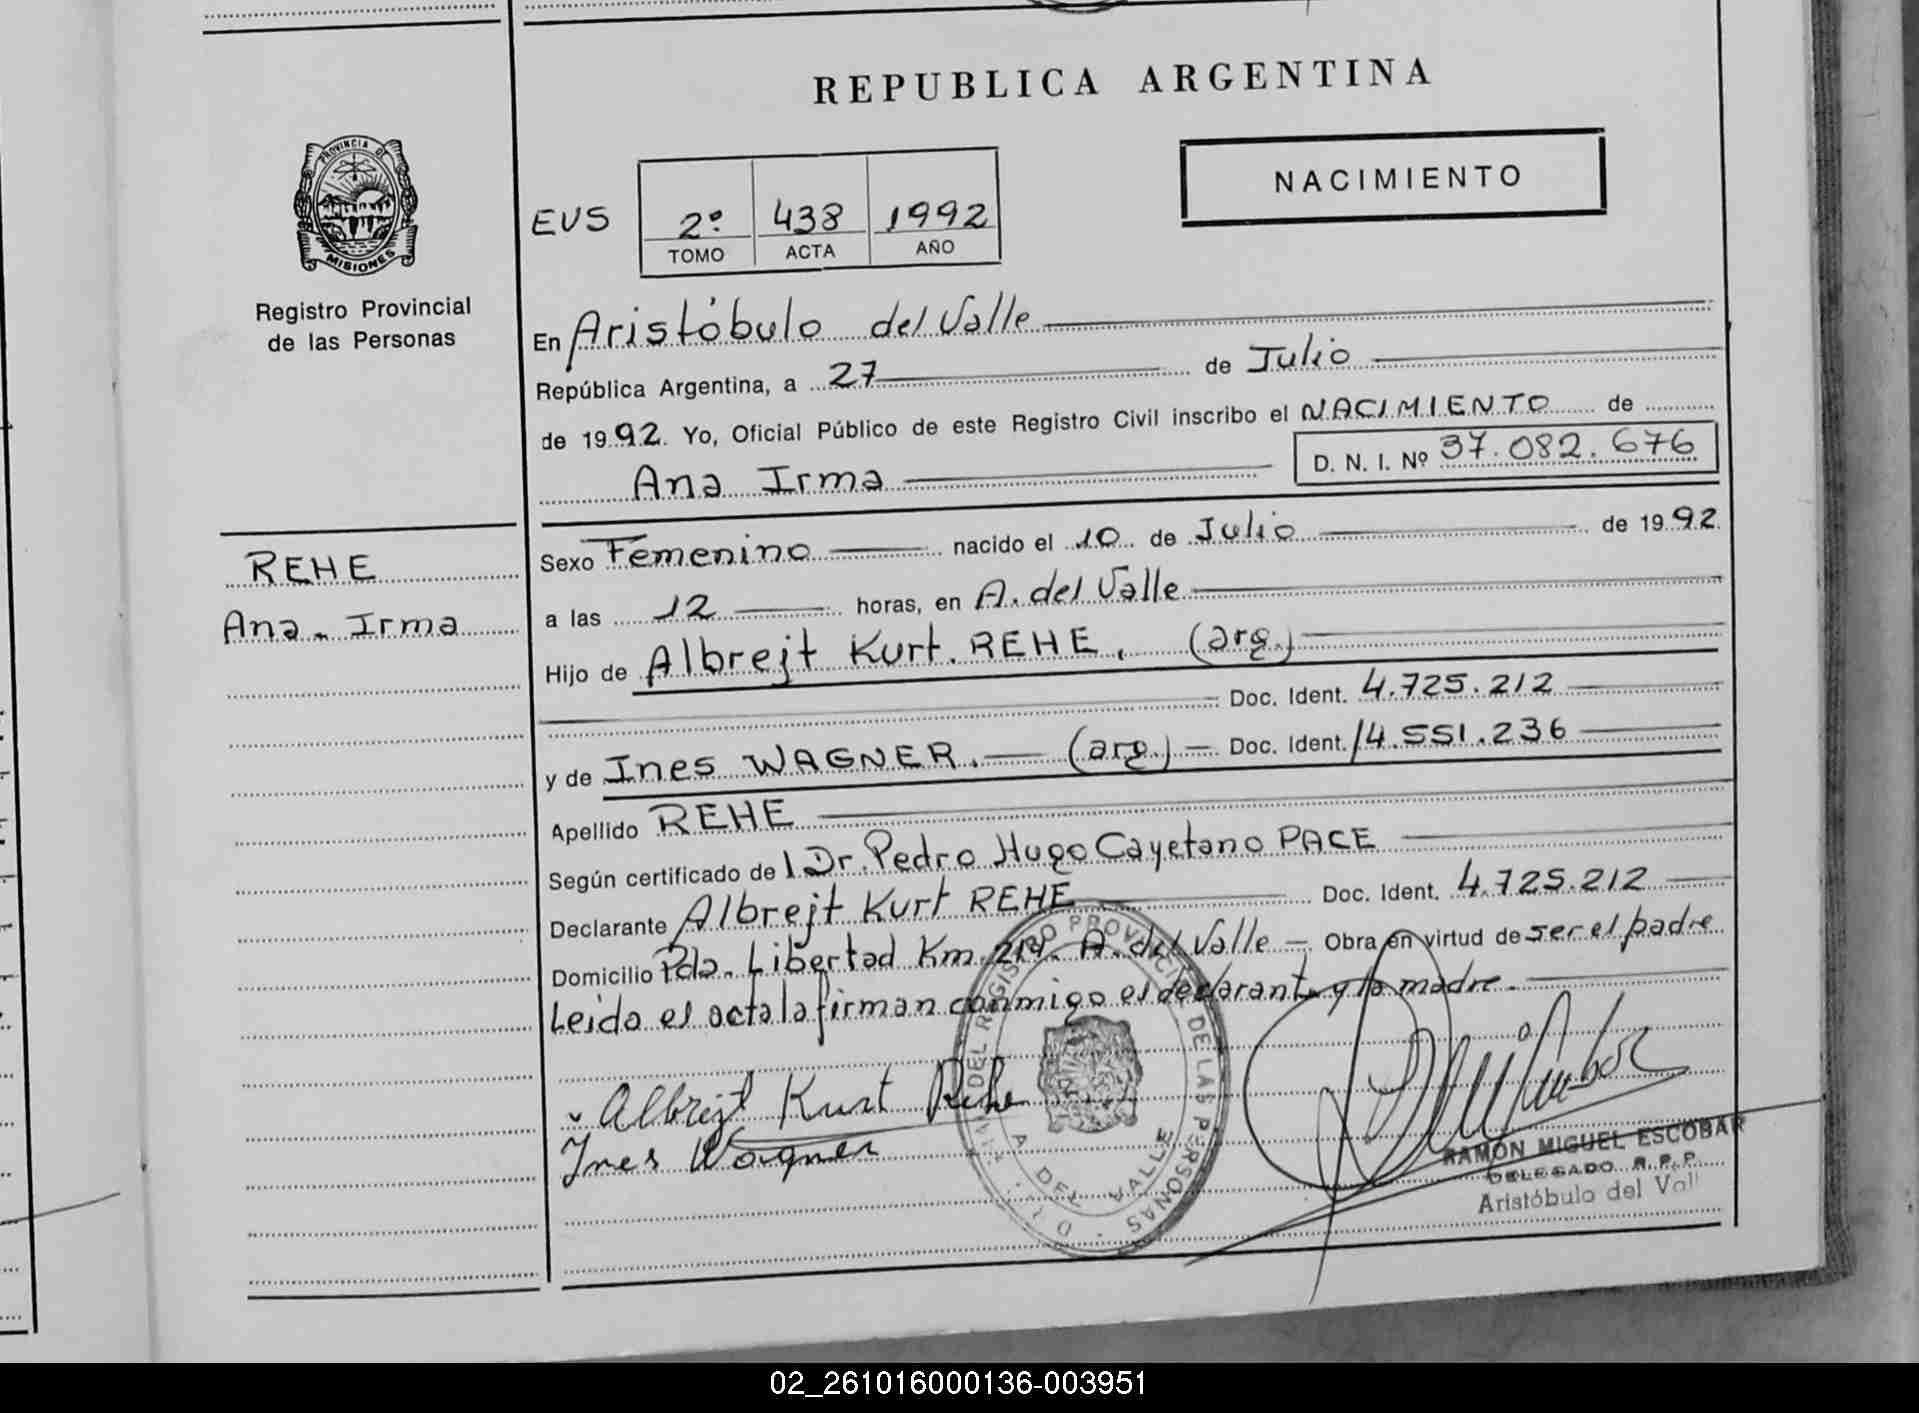 REPUBLICA ARGENTINA
PROVINCIA DE
MISIONES
Registro Provincial
de las Personas
NACIMIENTO
EVS
2º 438 1992
TOMO ACTA AÑO
En Aristóbulo del Valle
República Argentina, a 27 de Julio
de 1992. Yo, Oficial Público de este Registro Civil inscribo el NACIMIENTO de
Ana Irma D. N. I. Nº 37.082.676
REHE
Ana - Irma
Sexo Femenino nacido el 10 de Julio de 1992.
a las 12 horas, en A. del Valle
Hijo de Albrejt Kurt. REHE. (arg.)
Doc. Ident. 4.725.212
y de Ines WAGNER. (arg.) Doc. Ident. 14.551.236
Apellido REHE
Según certificado del Dr. Pedro Hugo Cayetano PACE
Declarante Albrejt Kurt REHE Doc. Ident. 4.725.212
Domicilio Pda. Libertad Km. A. del Valle Obra en virtud de ser el padre
Leida el acta la firman conmigo el declarante y la madre.
Albrejt Kurt Rehe
Ines Wagner
DEL REGISTRO PROVINCIAL DE LAS PERSONAS
A. DEL VALLE
RAMÓN MIGUEL ESCOBAR
DELEGADO R.P.P.
Aristóbulo del Vall
02_261016000136-003951